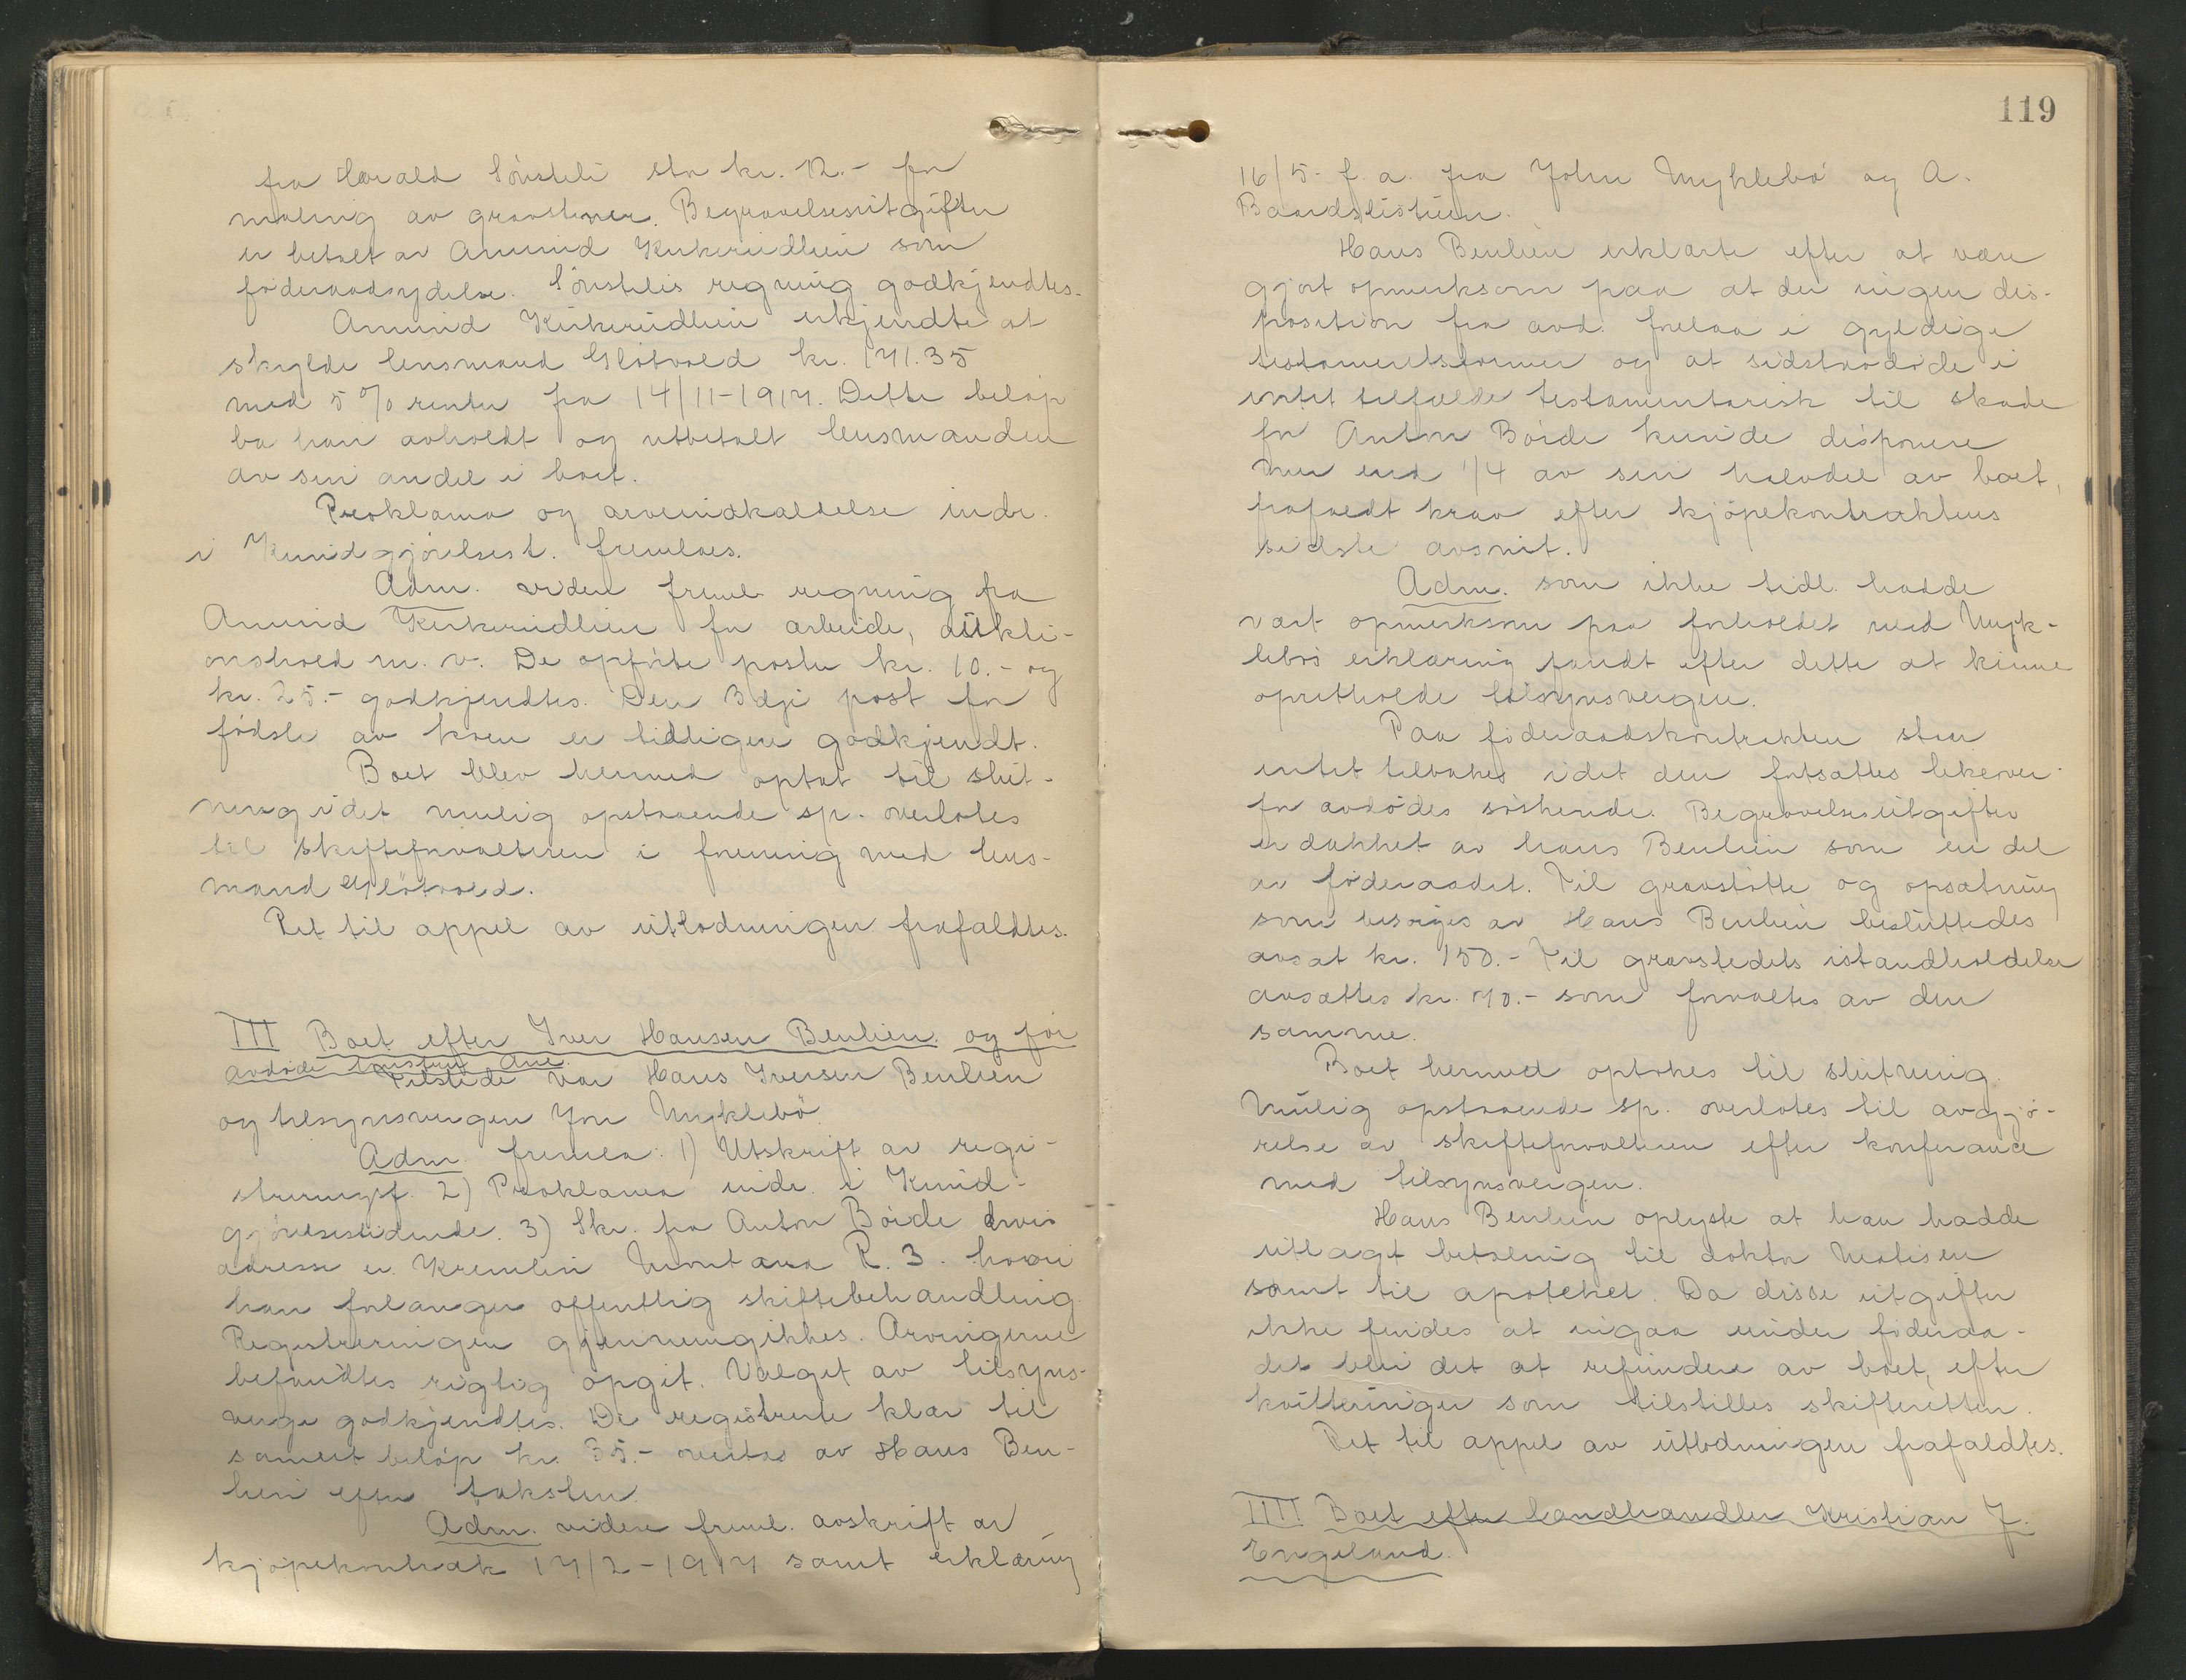 fra Harald Sönsteli sto kr. 12.- for
maling av gravstener. Begravelsesutgifter
er betalt av Amund Kirkerudlien som
föderaadsydelse. Sönstelis regning godkjendtes.
Amund Kirkerudlien erkjendte at
skylde lensmand Glötvold kr. 171.35
med 5 % renter fra 14/11-1917. Dette belöp
ba han avholdt og utbetalt lensmanden
av sin andel i boet.
Proklama og arveindkaldelse indr.
i Kundgjörelsest. fremlaes.
Adm. videre freml. regning fra
Amund Kirkerudlien for arbeide, aukti-
onshold m. v. De opförte poster kr. 10.- og
kr. 25.- godkjendtes. Den 3dje post for
födsle av kuen er tidligere godkjendt.
Boet blev hermed optat til slut-
ning idet mulig opstaaende sp. overlates
til skifteforvalteren i forening med lens-
mand Glötvold.
Ret til appel av utlodningen frafaldtes.
III Boet efter Iver Hansen Benlien og för
avdöde hustru Ane.
Tilstede var Hans Iversen Benlien
og tilsynsvergen Jon Myklebö
Adm. fremla: 1) Utskrift av regi-
streringsf. 2) Proklama indr. i Kund-
gjörelsestidende. 3) Skr. fra Anton Böide hvis
adresse er Kremlin Montana R. 3. hvori
han forlanger offentlig skiftebehandling.
Registreringen gjennemgikkes. Arvingerne
befandtes rigtig opgit. Valget av tilsyns-
verge godkjendtes. De registrerte klær til
samlet belöp kr. 35.- overtas av Hans Ben-
lien efter taksten.
Adm. videre freml. avskrift av
kjöpekontrak 17/2-1917 samt erklæring
119
16/5- f. a. fra John Myklebö og A.
Baardslistuen.
Hans Benlien erklærte efter at være
gjort opmerksom paa at der ingen dis-
position fra avd. forelaa i gyldige
testamentsformer og at sidstavdöde i
intet tilfælde testamentarisk til skade
for Anton Böide kunde disponere
mer end 1/4 av sin halvdel av boet,
frafaldt krav efter kjöpekontraktens
sidste avsnit.
Adm. som ikke tidl. hadde
vært opmerksom paa forholdet med Myk-
lebös erklæring fandt efter dette at kunne
opretholde tilsynsvergen.
Paa föderaadskontrakten staar
intet tilbakes idet den fortsattes likeover-
for avdödes söskende. Begravelsesutgifter
er dækket av Hans Benlien som en del
av föderaadet. Til gravstötte og opsætning
som besörges av Hans Benlien besluttedes
avsat kr. 150.- Til gravstedets istandholdelse
avsættes kr. 70.- som forvaltes av den
samme.
Boet hermed optokes til slutning.
Mulig opstaaende sp. overlates til avgjö-
relse av skifteforvalteren efter konferance
med tilsynsvergen.
Hans Benlien oplyste at han hadde
utlagt betaling til doktor Matisen
samt til apoteket. Da disse utgifter
ikke findes at ingaa under föderaa-
det blir det at refundere av boet, efter
kvitteringer som tilstilles skifteretten.
Ret til appel av utlodningen frafaldtes.
IIII Boet efter landhandler Kristian J.
Engeland.